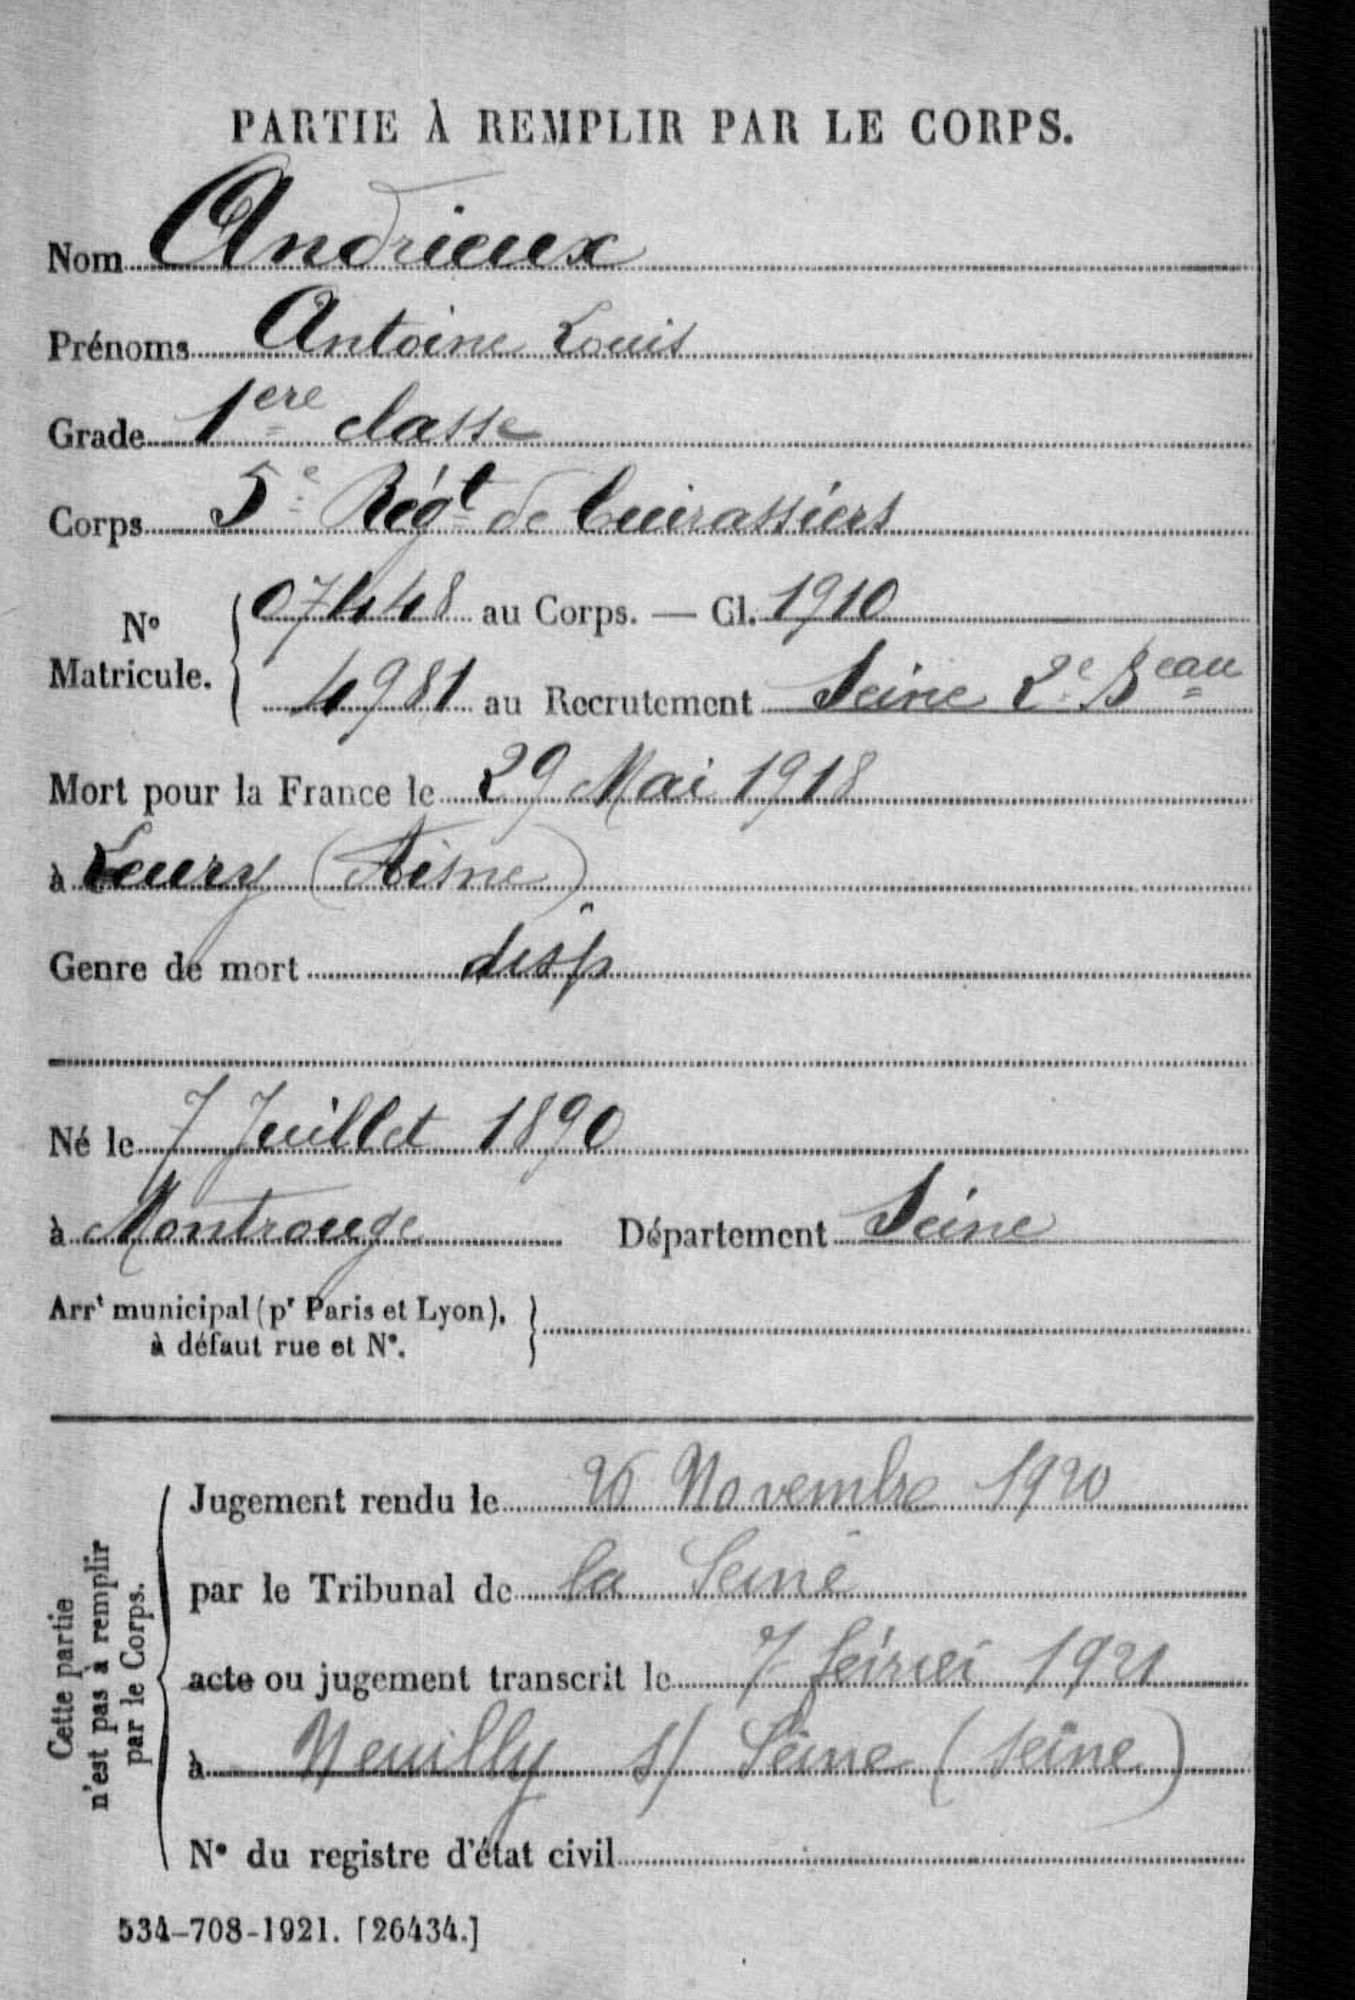 PARTIE À REMPLIR PAR LE CORPS.
Nom Andrieux
Prénoms Antoine Louis
Grade 1ere classe
Corps 5e Régt de Cuirassiers
N° Matricule. 07448 au Corps. — Cl. 1910
4981 au Recrutement Seine 2e Beau
Mort pour la France le 29 Mai 1918
à Leury (Aisne)
Genre de mort disp
Né le 7 Juillet 1890
à Montrouge Département Seine
Arrt municipal (pr Paris et Lyon),
à défaut rue et N°.
Cette partie
n'est pas à remplir
par le Corps.
Jugement rendu le 26 Novembre 1920
par le Tribunal de la Seine
acte ou jugement transcrit le 7 février 1921
à Neuilly s/ Seine (Seine)
N° du registre d'état civil
534-708-1921. [26434.]